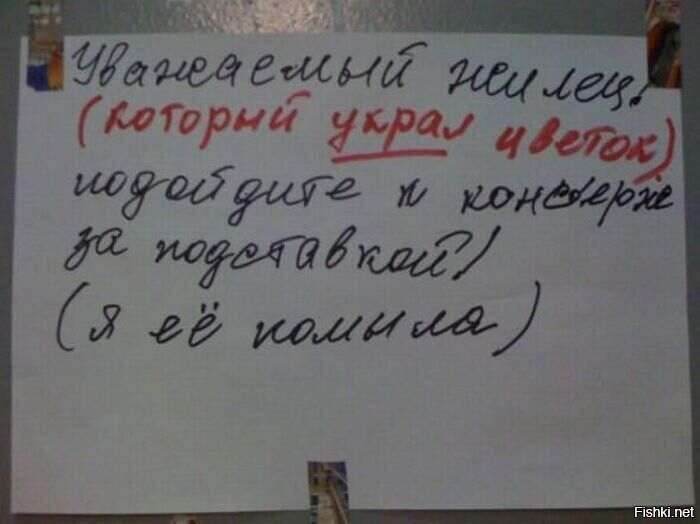 Уважаемый жилец!
(который украл цветок)
подойдите к консьерже
за подставкой!
(я её помыла)
Fishki.net